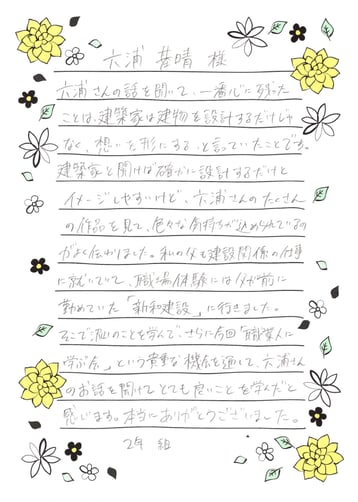 六浦 基晴 様
六浦さんの話を聞いて、一番心に残った
ことは、建築家は建物を設計するだけじゃ
なく、想いを形にする、と言っていたことです。
建築家と聞けば確かに設計するだけと
イメージしやすいけど、六浦さんのたくさん
の作品を見て、色々な気持ちが込められているの
がよく伝わりました。私の父も建設関係の仕事
に就いていて、職場体験には父が前に
勤めていた「新和建設」に行きました。
そこで沢山のことを学んで、さらに今回「職業人に
学ぶ会」という貴重な機会を通して、六浦さん
のお話を聞けてとても良いことを学んだと
感じます。本当にありがとうございました。
2年 組